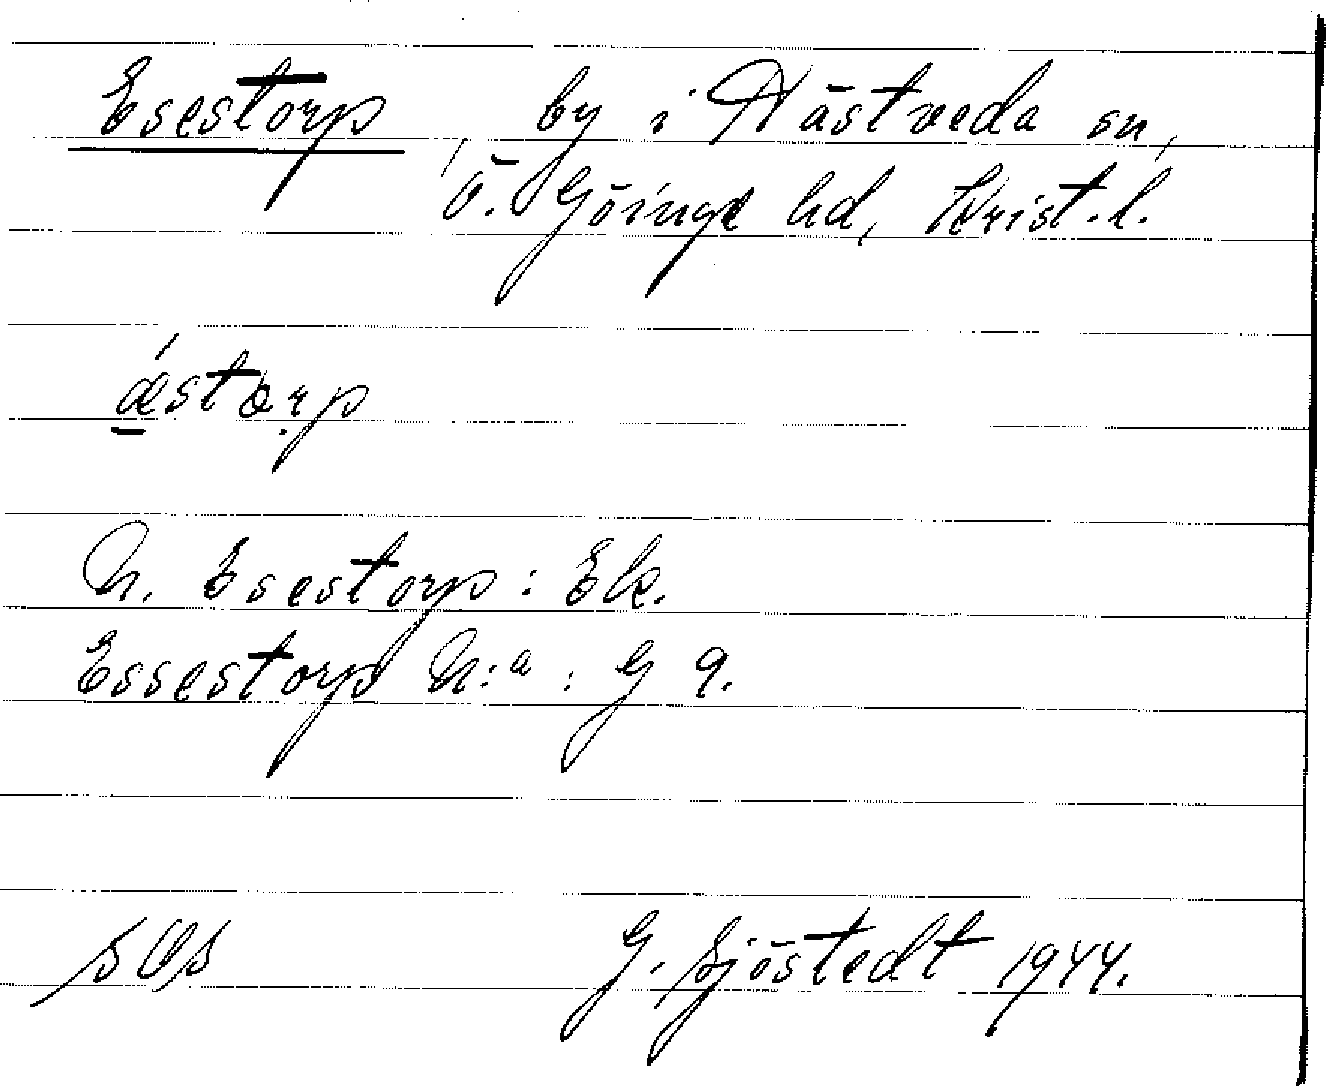 Esestorp, by i Nästveda sn,
Ö. Göinge hd, Krist. l.
ǽstorp
N. Esestorp: Ek.
Essestorp N:a : G 9.
G. Sjöstedt 1944.